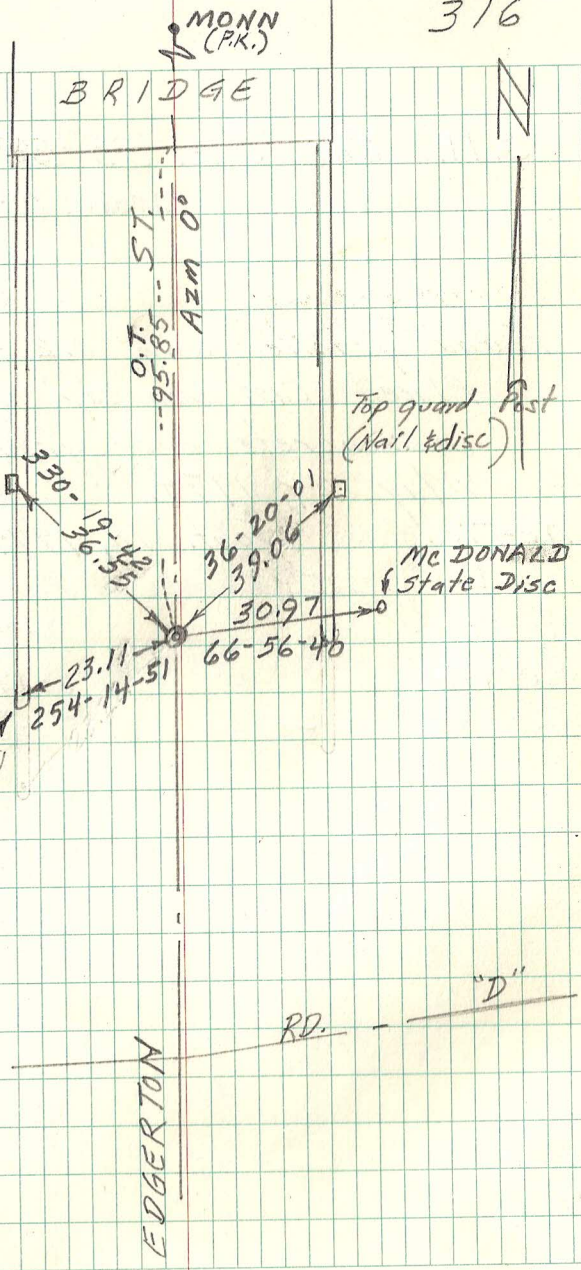 316
MONN
(P.K.)
BRIDGE
N
O.T. ST.
--95.85--
Azm 0°
Top guard Post
(Nail & disc)
330-19-42
36.55
36-20-01
39.06
McDONALD
State Disc
30.97
66-56-40
23.11
254-14-51
RD. - "D"
EDGERTON